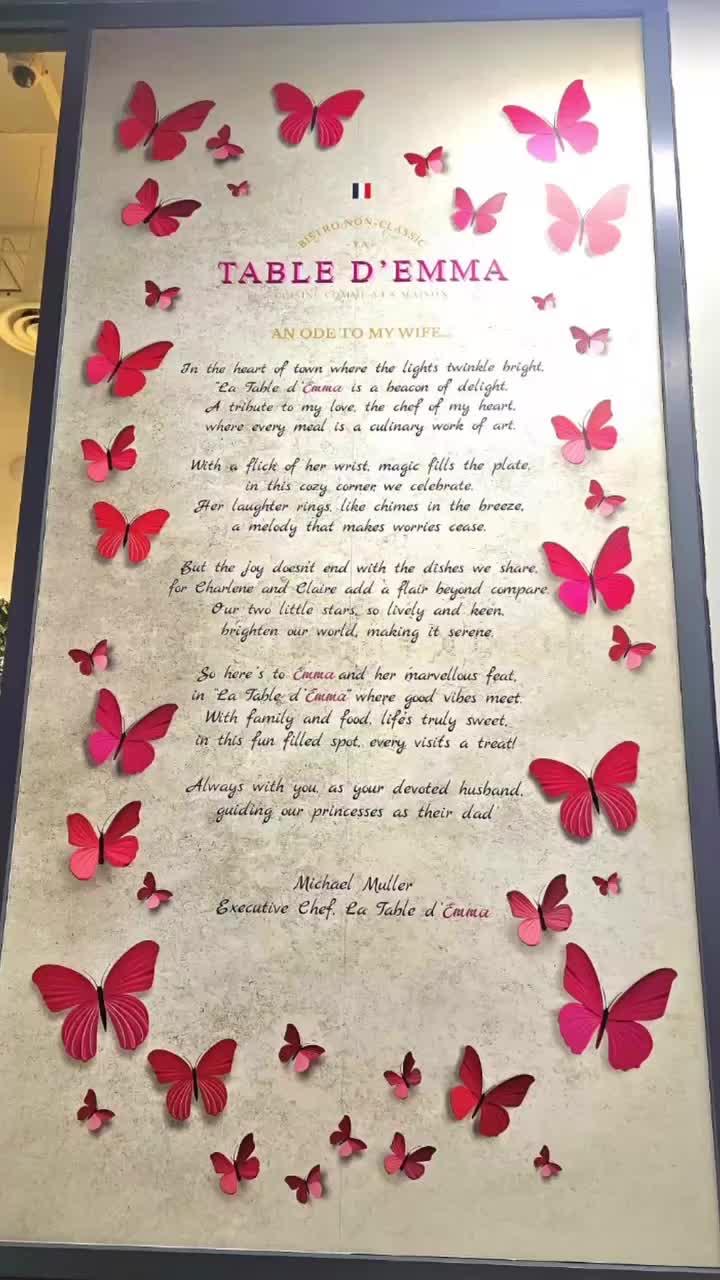 BISTRO NON-CLASSIC
- LA -
TABLE D'EMMA
CUISINE COMME A LA MAISON
AN ODE TO MY WIFE...
In the heart of town where the lights twinkle bright,
"La Table d'Emma is a beacon of delight.
A tribute to my love, the chef of my heart,
where every meal is a culinary work of art.
With a flick of her wrist, magic fills the plate,
in this cozy corner, we celebrate.
Her laughter rings, like chimes in the breeze,
a melody that makes worries cease.
But the joy doesn't end with the dishes we share,
for Charlene and Claire add a flair beyond compare.
Our two little stars, so lively and keen,
brighten our world, making it serene.
So here's to Emma and her marvellous feat,
in "La Table d'Emma" where good vibes meet.
With family and food, life's truly sweet,
in this fun filled spot, every visits a treat!
Always with you, as your devoted husband,
guiding our princesses as their dad'
Michael Muller
Executive Chef, La Table d'Emma